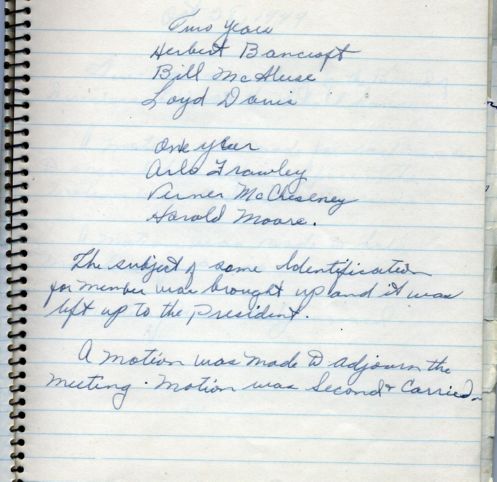 Two Years
Herbert Bancroft
Bill McAluse
Loyd Davis
One year
Arlo Frawley
Verner McChesney
Harold Moore.
The subject of some Identification
for member was brought up and it was
left up to the president.
A motion was made to adjourn the
meeting. Motion was Second & Carried